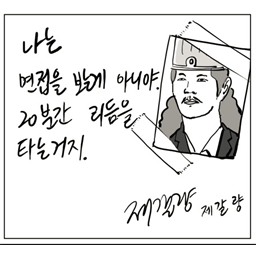 나는
면접을 보는게 아니야.
20분간 리듬을
타는거지.
제갈량 제갈 량